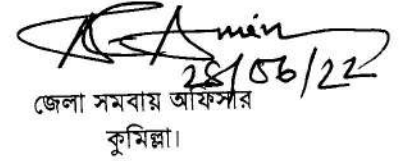 Amin
28/06/22
জেলা সমবায় অফিসার
কুমিল্লা।